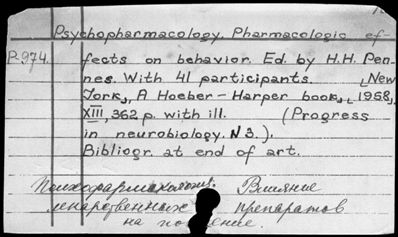 Psychopharmacology. Pharmacologic ef-
P-974 fects on behavior. Ed. by H.H. Pen-
nes. With 41 participants. [New
York], A Hoeber-Harper book, [1958],
XIII, 362 p. with ill. (Progress
in neurobiology. N 3.).
Bibliogr. at end of art.
Психофармакология. Влияние
лекарственных препаратов
на